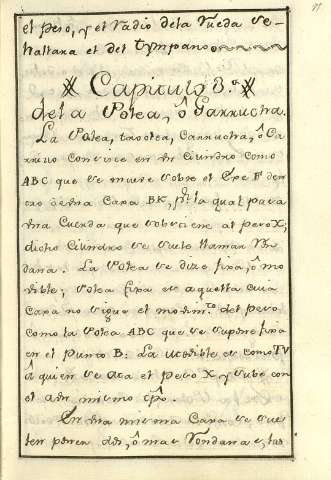 el peso, y el Radio dela Rueda se
hallara el del tympano
Capitulo 3.º
dela Polea, ô Garrucha.
La Polea, troclea, Carrucha, ô Ca
rrillo consiste en un Cilindro como
ABC que se mueve sobre el Exe F den
tro de una Caxa BK, pr. la qual pasa
una Cuerda que sobstiene al peso X,
dicho Cilindro se suele llamar Ron
dana. La Polea se dize fixa, ô mo
vible; Polea fixa es aquella cuia
Caxa no sigue el movim.to del peso
como la Polea ABC que se supone fixa
en el punto B. La movible es como TV
â quien se ata el peso X y sube con
el al mismo tpõ.
En una misma Caxa se sue
len poner dos, ô mas Rondanas, las